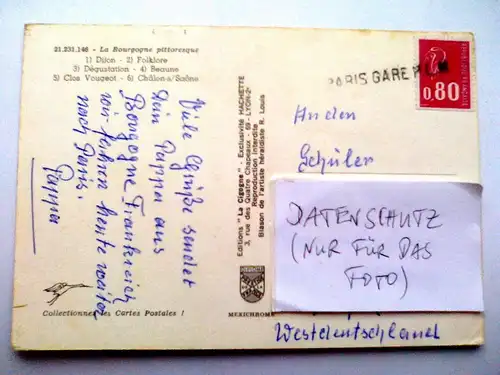 21.231.146 - La Bourgogne pittoresque
1) Dijon - 2) Folklore
3) Dégustation - 4) Beaune
5) Clos Vougeot - 6) Châlon s/Saône
Viele Grüße sendet
Dein Pappa aus
Bourgogne Frankreich
wir fahren heute weiter
nach Paris.
Pappa
Collectionnez les Cartes Postales !
Editions "La Cigogne" - Exclusivité HACHETTE
3, rue des Quatre Chapeaux - 69 - LYON-2e
Reproduction interdite
Blason de l'artiste héraldiste R. Louis
MEXICHROME
PARIS GARE
0,80
An den
Schüler
DATENSCHUTZ
(NUR FÜR DAS
FOTO)
Westdeutschland